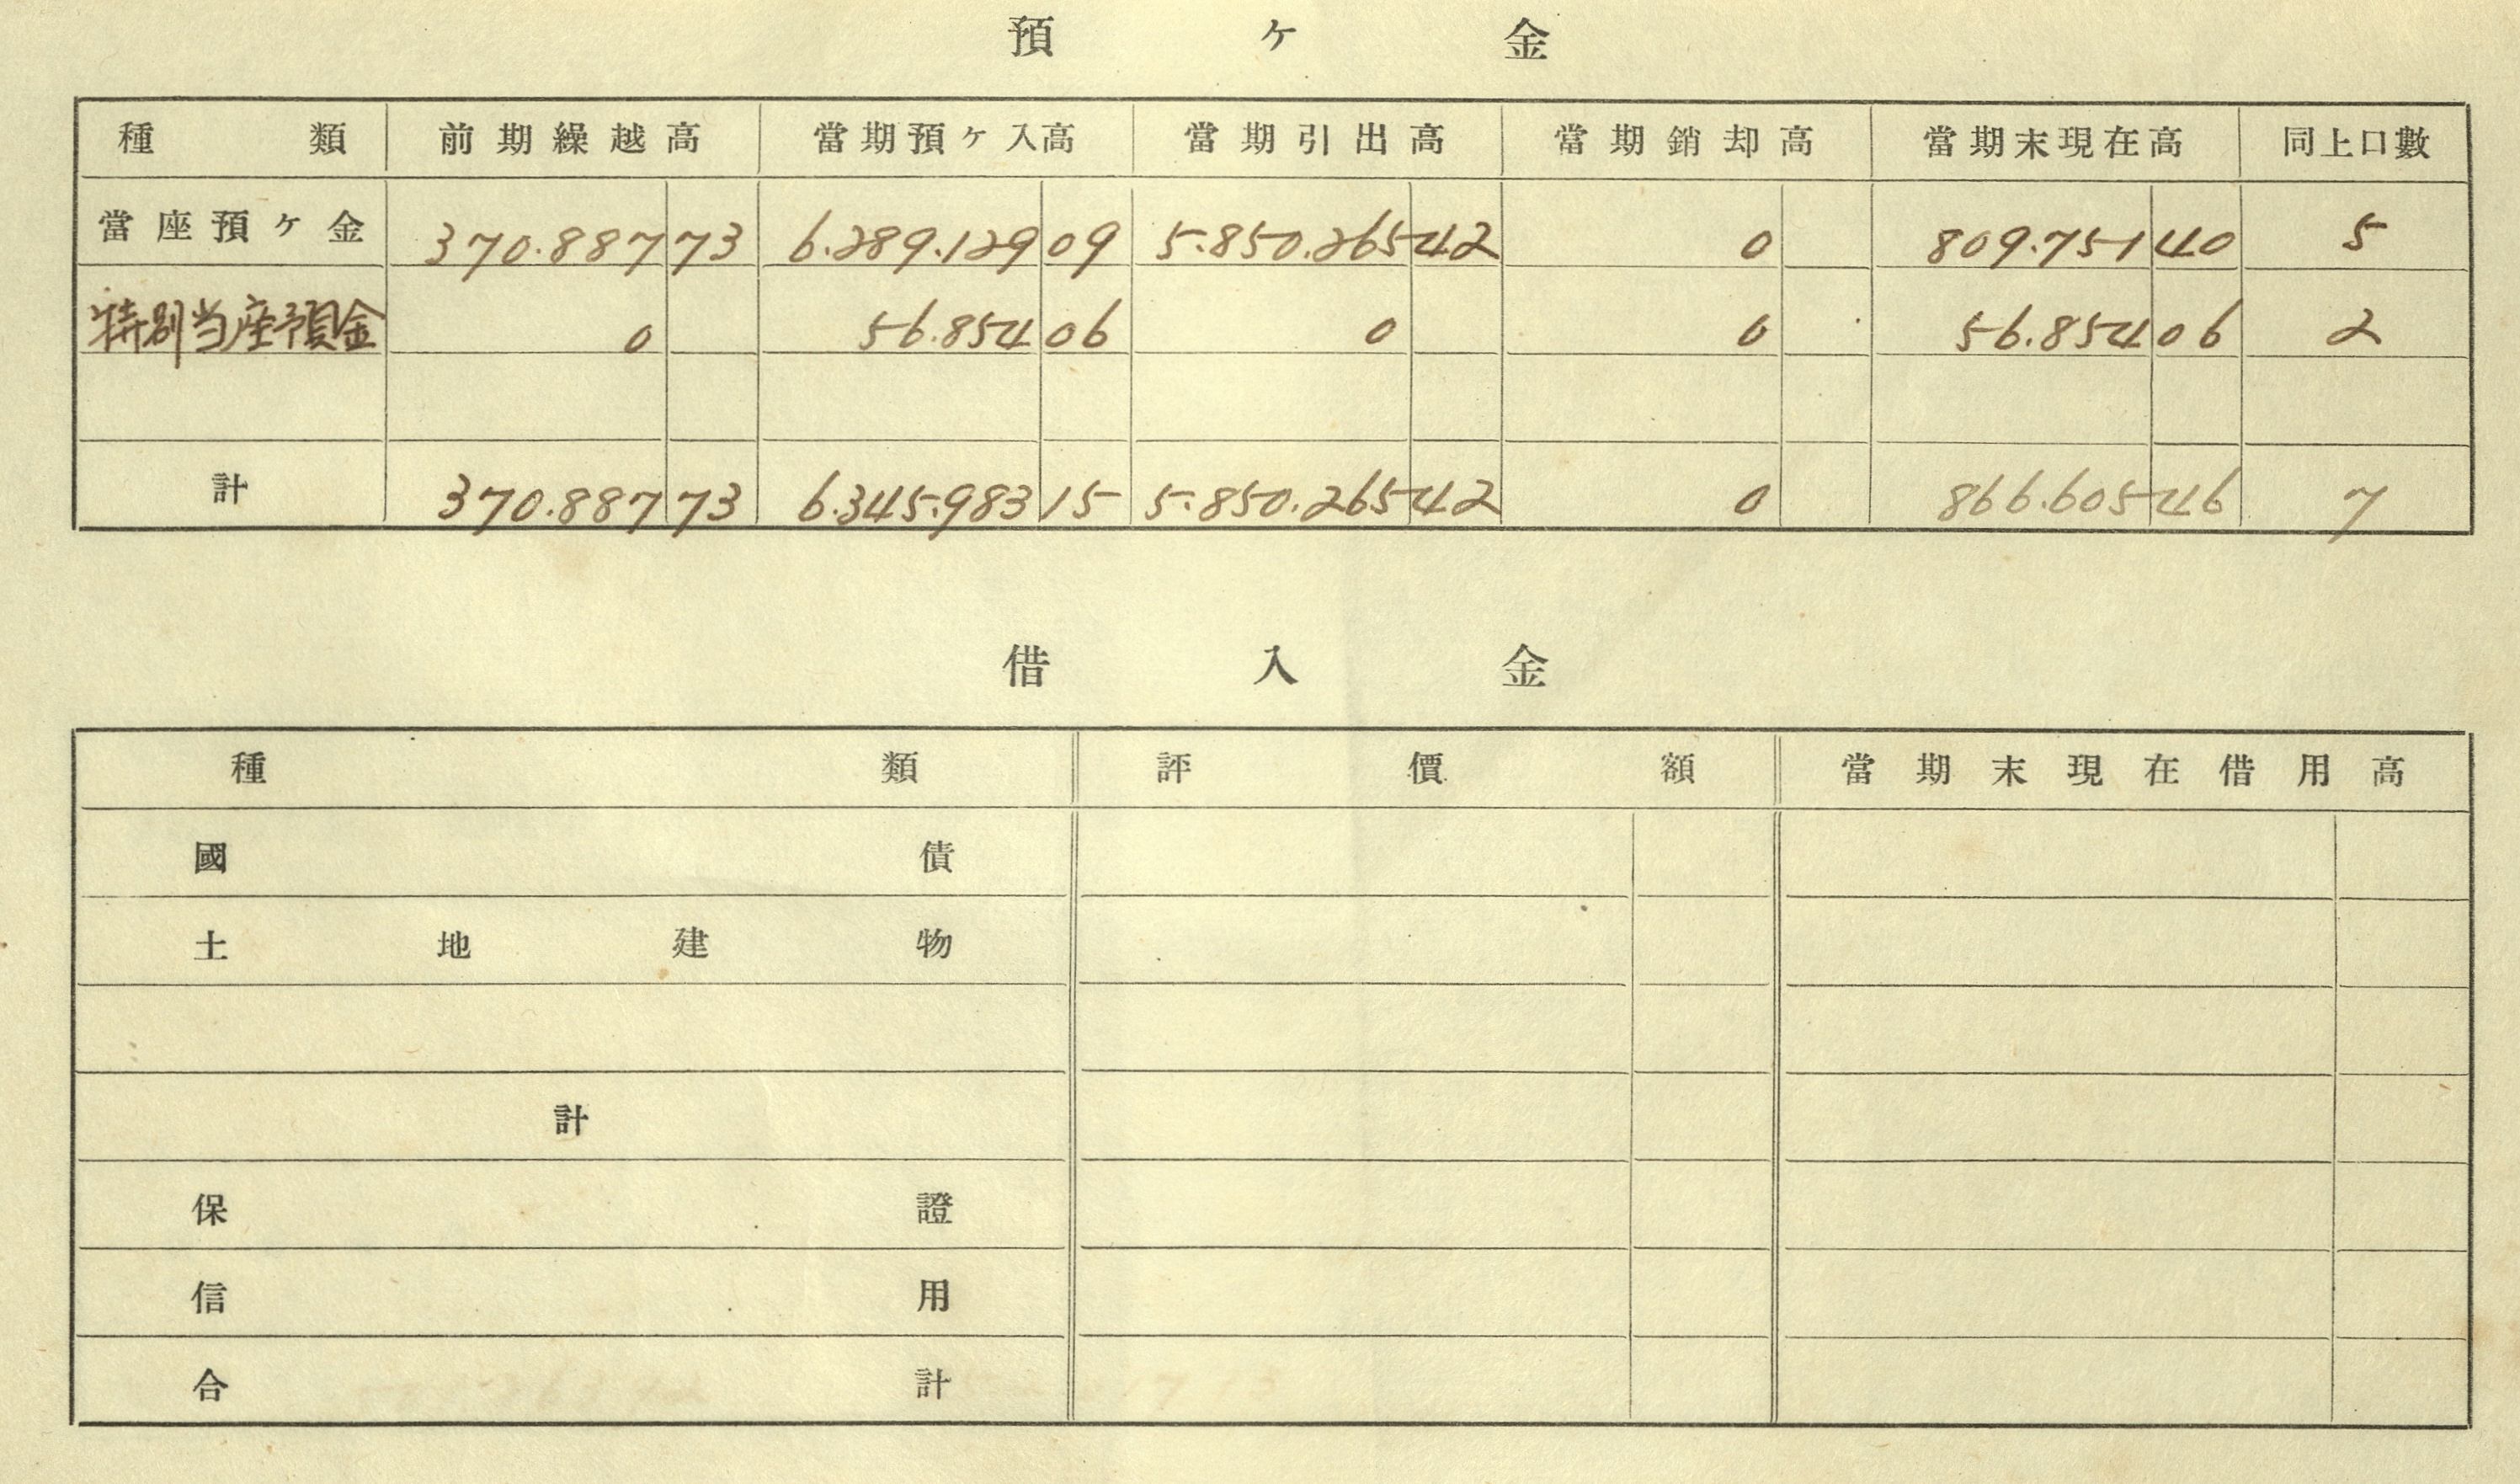 預ケ金
種類 前期繰越高 當期預ケ入高 當期引出高 當期銷却高 當期末現在高 同上口數
當座預ケ金 370.887 73 6.289.129 09 5.850.265 42 0 809.751 40 5
特別当座預金 0 56.854 06 0 0 56.854 06 2
計 370.887 73 6.345.983 15 5.850.265 42 0 866.605 46 7
借入金
種類 評價額 當期末現在借用高
國債
土地建物
計
保證
信用
合計